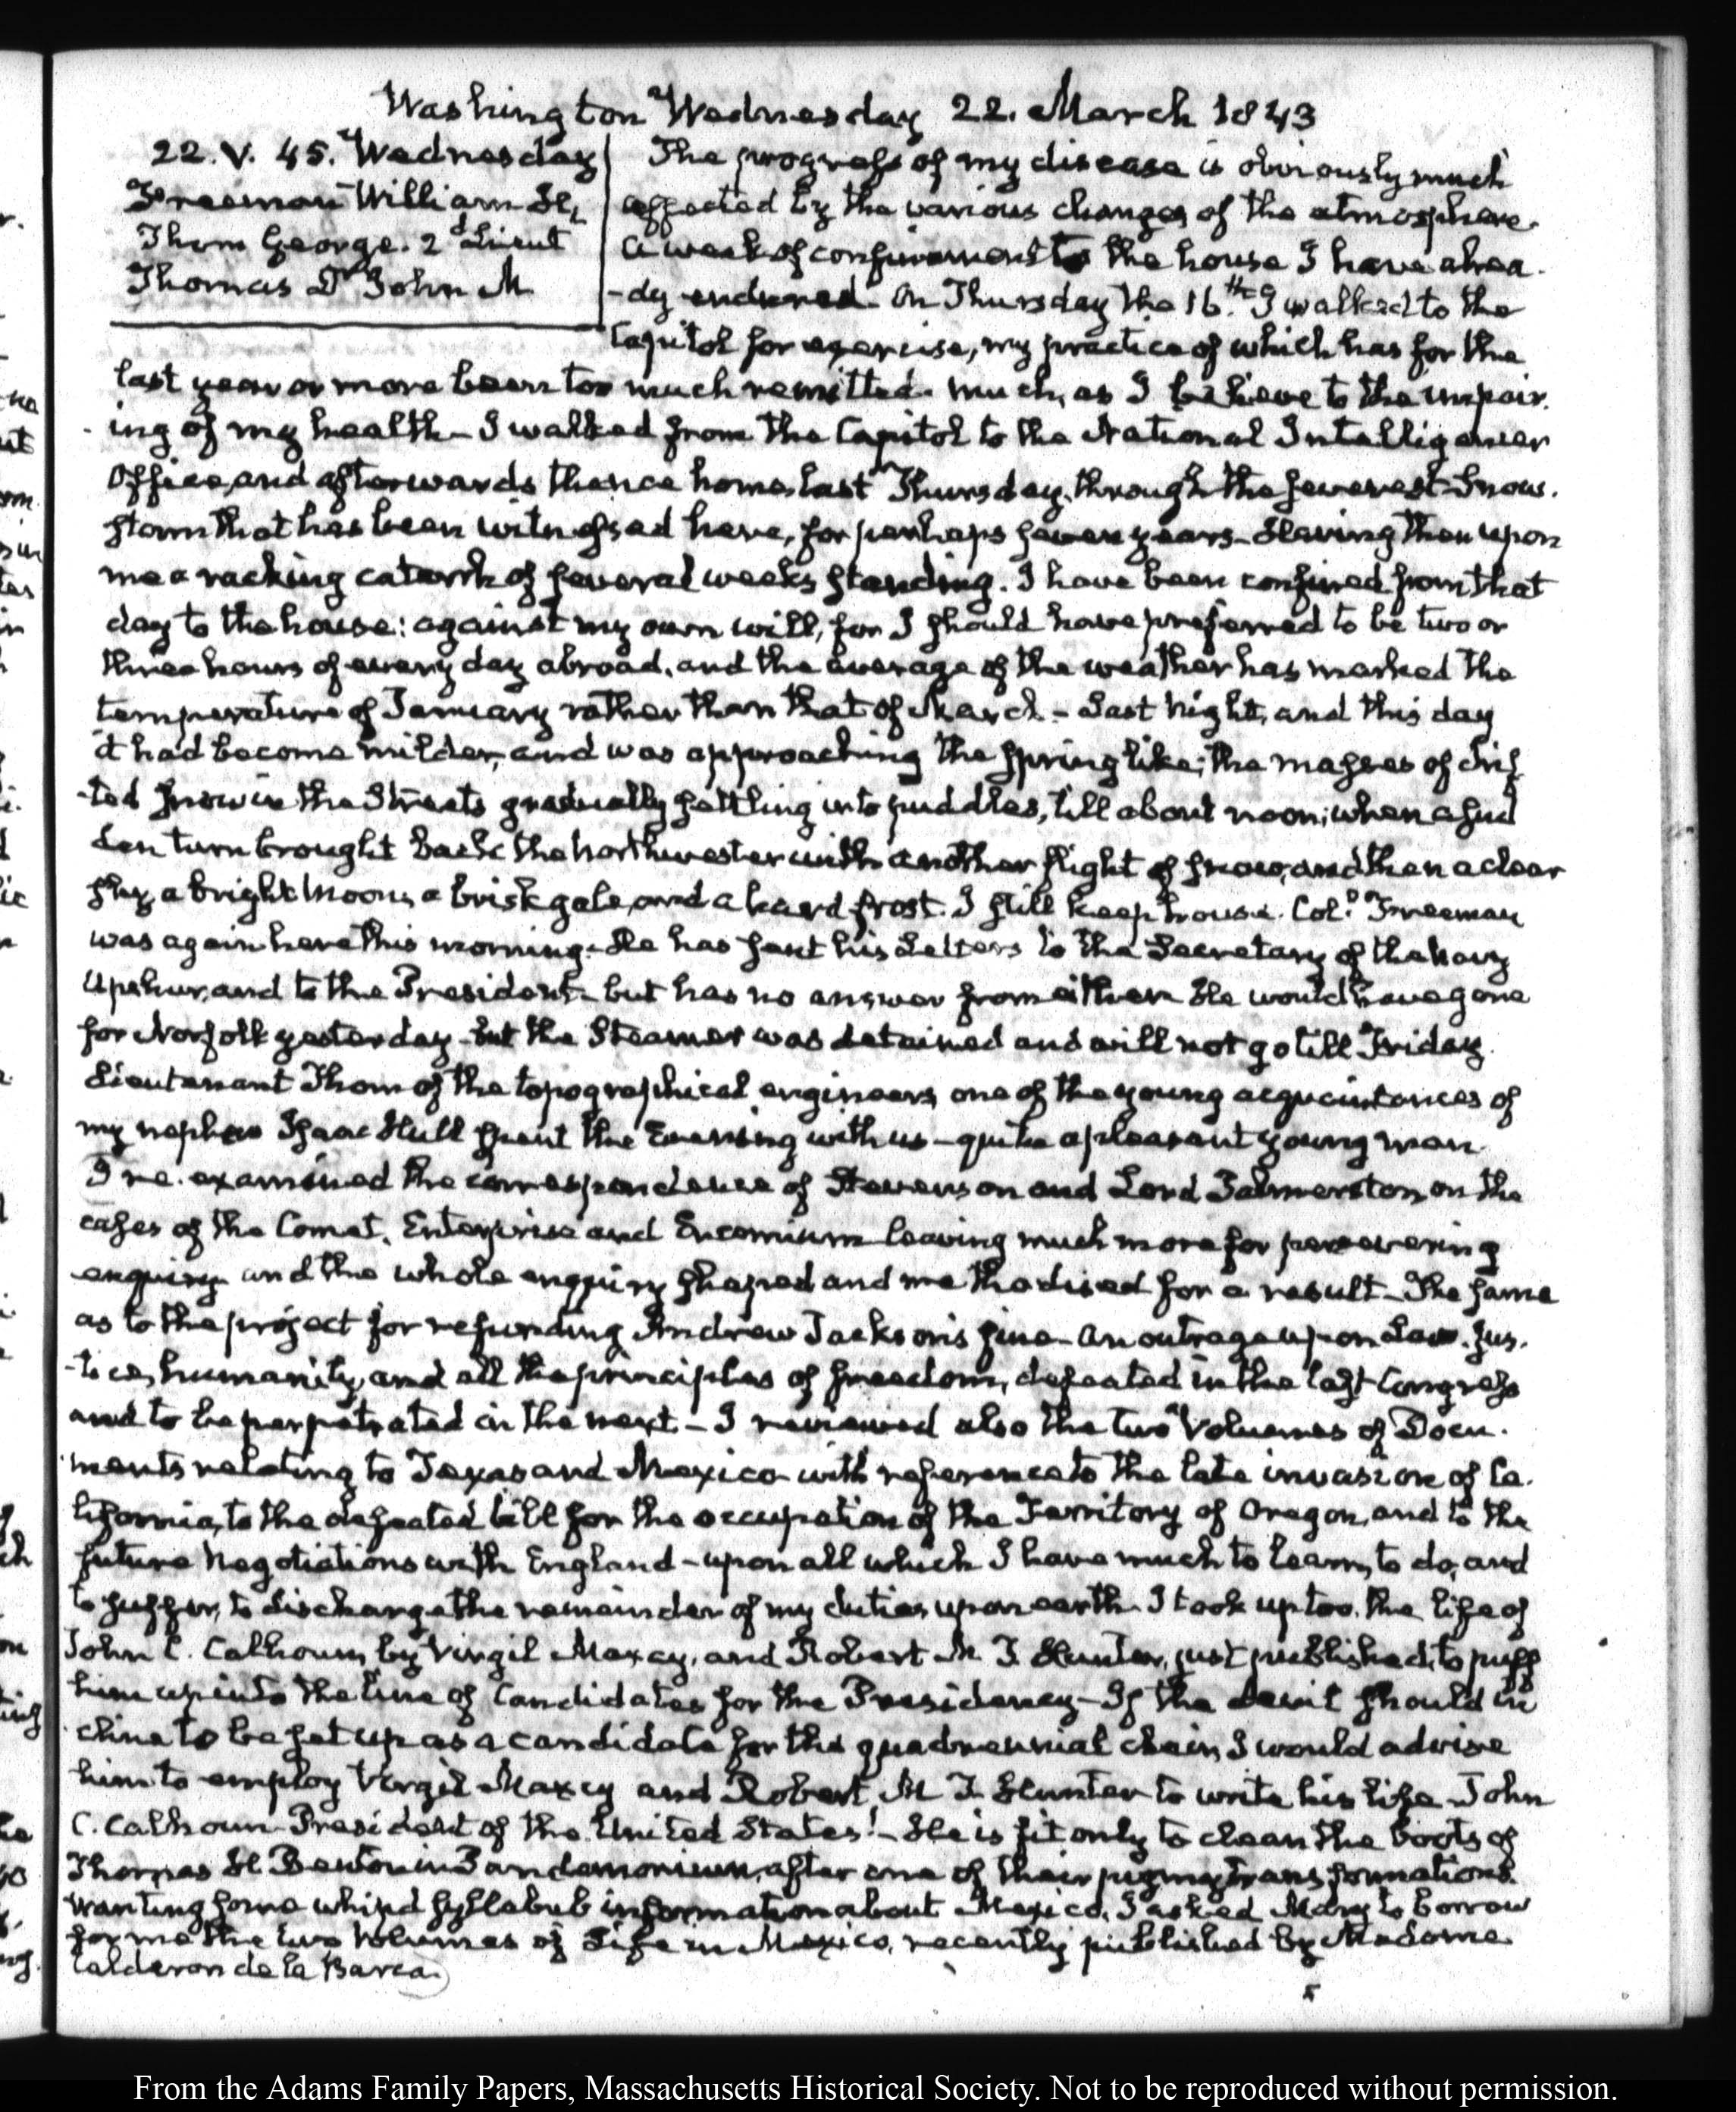 Washington Wednesday 22. March 1843
22. V. 45. Wednesday
Freeman William H.
Thom George. 2d Lieut
Thomas Dr John M
The progress of my disease is obviously much
affected by the various changes of the atmosphere.
A week of confinement to the house I have alrea-
-dy endured. On Thursday the 16th. I walked to the
Capitol for exercise, my practice of which has for the
last year or more been too much remitted. much, as I believe to the impair-
ing of my health— I walked from the Capitol to the National Intelligencer
Office, and afterwards thence home, last Thursday, through the severest Snow.
storm that has been witnessed here, for perhaps seven years— Having then upon
me a racking catarrh of several weeks standing. I have been confined from that
day to the house: against my own will, for I should have preferred to be two or
three hours of every day abroad, and the average of the weather has marked the
temperature of January rather than that of March— Last night, and this day
it had become milder, and was approaching the spring like; the masses of drif-
-ted snow in the Streets gradually settling into puddles, till about noon; when a sud
den turn brought back the northwester with another flight of snow, and then a clear
sky, a bright Moon, a brisk gale, and a hard frost. I still keep house. Col. Freeman
was again here this morning. He has sent his Letters to the Secretary of the Navy
Upshur, and to the President— but has no answer from either He would have gone
for Norfolk yesterday— but the Steamer was detained and will not go till Friday.
Lieutenant Thom of the topographical engineers, one of the young acquaintances of
my nephew Isaac Hull spent the Evening with us— quite a pleasant young man.
I re-examined the correspondence of Stevenson and Lord Palmerston, on the
cases of the Comet, Enterprise and Encomium leaving much more for persevering
enquiry and the whole enquiry shaped and methodised for a result— The same
as to the project for refunding Andrew Jackson's fine— An outrage upon Law. Jus-
-tice, humanity, and all the principles of freedom, defeated in the last Congress
and to be perpetrated in the next— I reviewed also the two Volumes of Docu.
ments relating to Texas and Mexico with reference to the late invasion of Ca.
lifornia, to the defeated bill for the occupation of the Territory of Oregon, and to the
future Negotiations with England— upon all which I have much to learn, to do, and
to suffer, to discharge the remainder of my duties upon earth. I took up too, the life of
John C. Calhoun, by Virgil Maxcy, and Robert M. T. Hunter, just published, to puff
him up into the line of Candidates for the Presidency— If the devil should in
cline to be set up as a candidate for the quadrennial chair, I would advise
him to employ Virgil Maxcy and Robert M T. Hunter to write his life John
C. Calhoun President of the United States!— He is fit only to clean the boots of
Thomas H Benton in Pandemonium, after one of their pigmy transformations.
Wanting some whip'd syllabub information about Mexico, I asked Mary to borrow
for me the two Volumes of Life in Mexico, recently published by Madame
Calderon de la Barca.
From the Adams Family Papers, Massachusetts Historical Society. Not to be reproduced without permission.